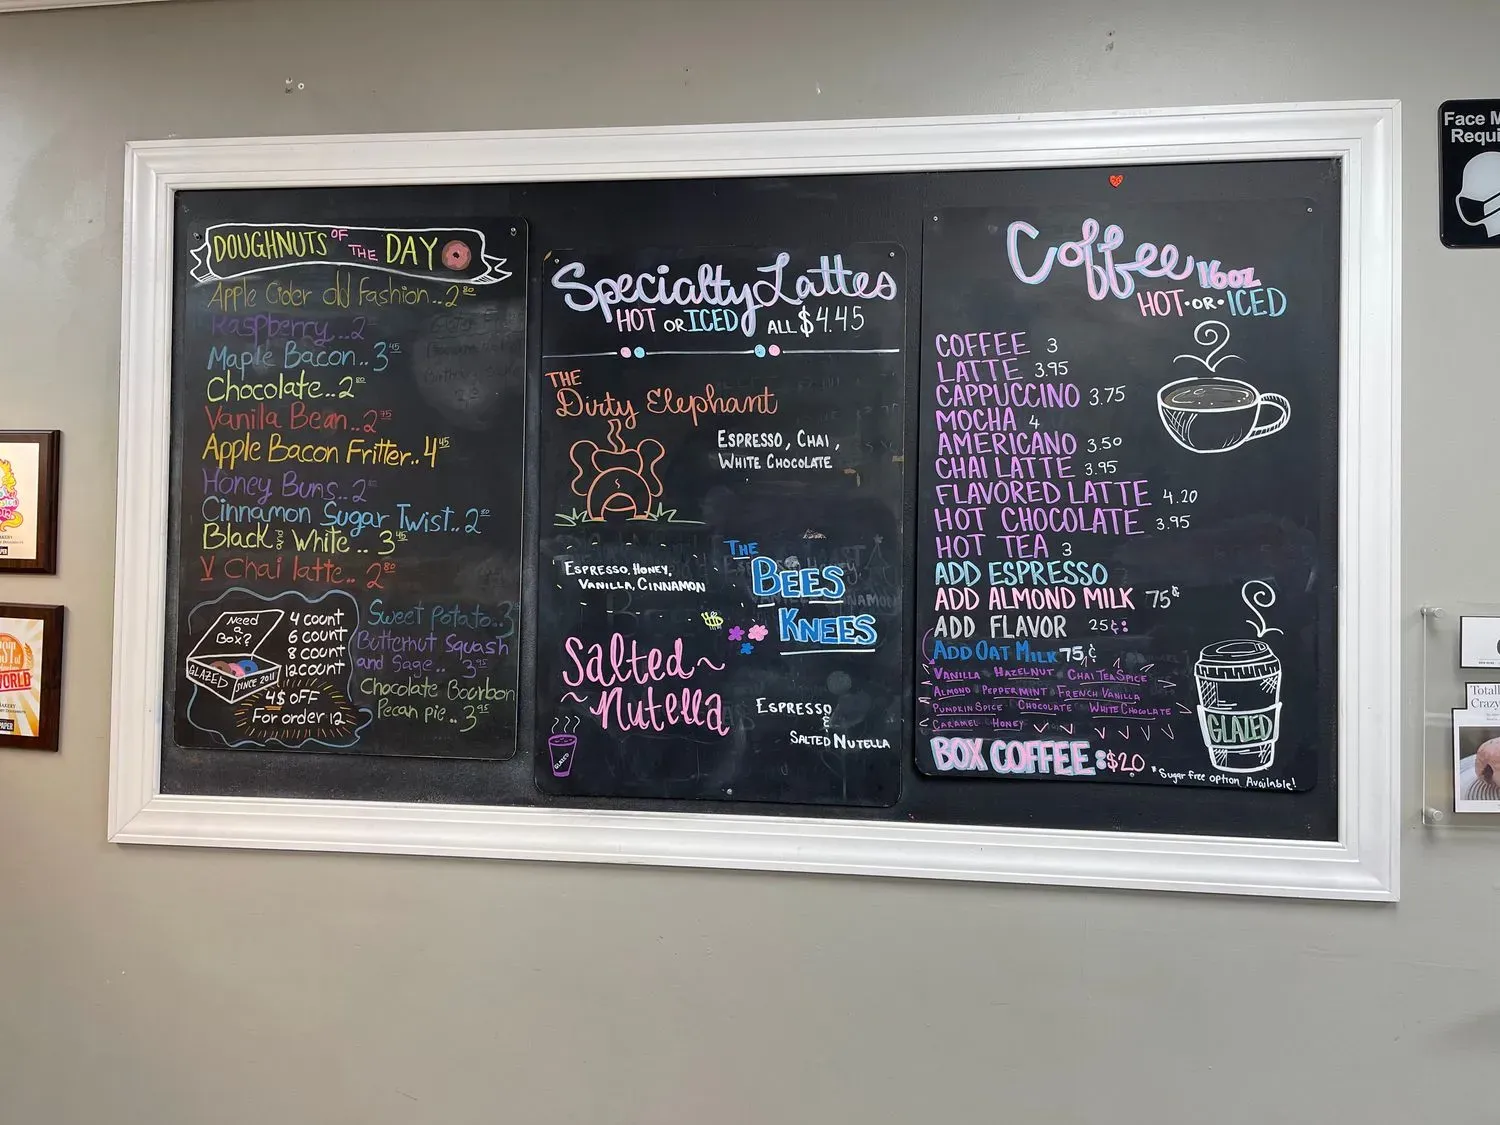 DOUGHNUTS OF THE DAY
Apple Cider old Fashion..2 80
Raspberry...2
Maple Bacon..3 45
Chocolate..2 80
Vanilla Bean..2 75
Apple Bacon Fritter..4 45
Honey Buns..2
Cinnamon Sugar Twist..2 80
Black and White..3 45
V Chai latte..2 80
Need
a
Box?
GLAZED
SINCE 2011
4 count
6 count
8 count
12 count
4$ OFF
For order 12
Sweet Potato..3
Butternut Squash
and Sage..3 95
Chocolate Bourbon
Pecan pie..3 95
Specialty Lattes
HOT OR ICED ALL $4.45
THE
Dirty Elephant
ESPRESSO, CHAI,
WHITE CHOCOLATE
THE
BEES
KNEES
ESPRESSO, HONEY,
VANILLA, CINNAMON
Salted
Nutella
ESPRESSO
&
SALTED NUTELLA
GLAZED
Coffee 16oz
HOT·OR·ICED
COFFEE 3
LATTE 3.95
CAPPUCCINO 3.75
MOCHA 4
AMERICANO 3.50
CHAI LATTE 3.95
FLAVORED LATTE 4.20
HOT CHOCOLATE 3.95
HOT TEA 3
ADD ESPRESSO
ADD ALMOND MILK 75¢
ADD FLAVOR 25¢:
ADD OAT MILK 75¢
VANILLA HAZELNUT CHAI TEA SPICE
ALMOND PEPPERMINT FRENCH VANILLA
PUMPKIN SPICE CHOCOLATE WHITE CHOCOLATE
CARAMEL HONEY
BOX COFFEE:$20
*Sugar free option Available!
GLAZED
Face M
Requi
Totall
Crazy
WORLD